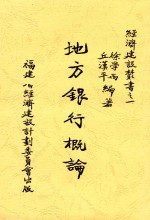 經濟建設叢書之一
徐學禹
丘漢平 編著
地方銀行概論
福建省經濟建設計劃委員會出版